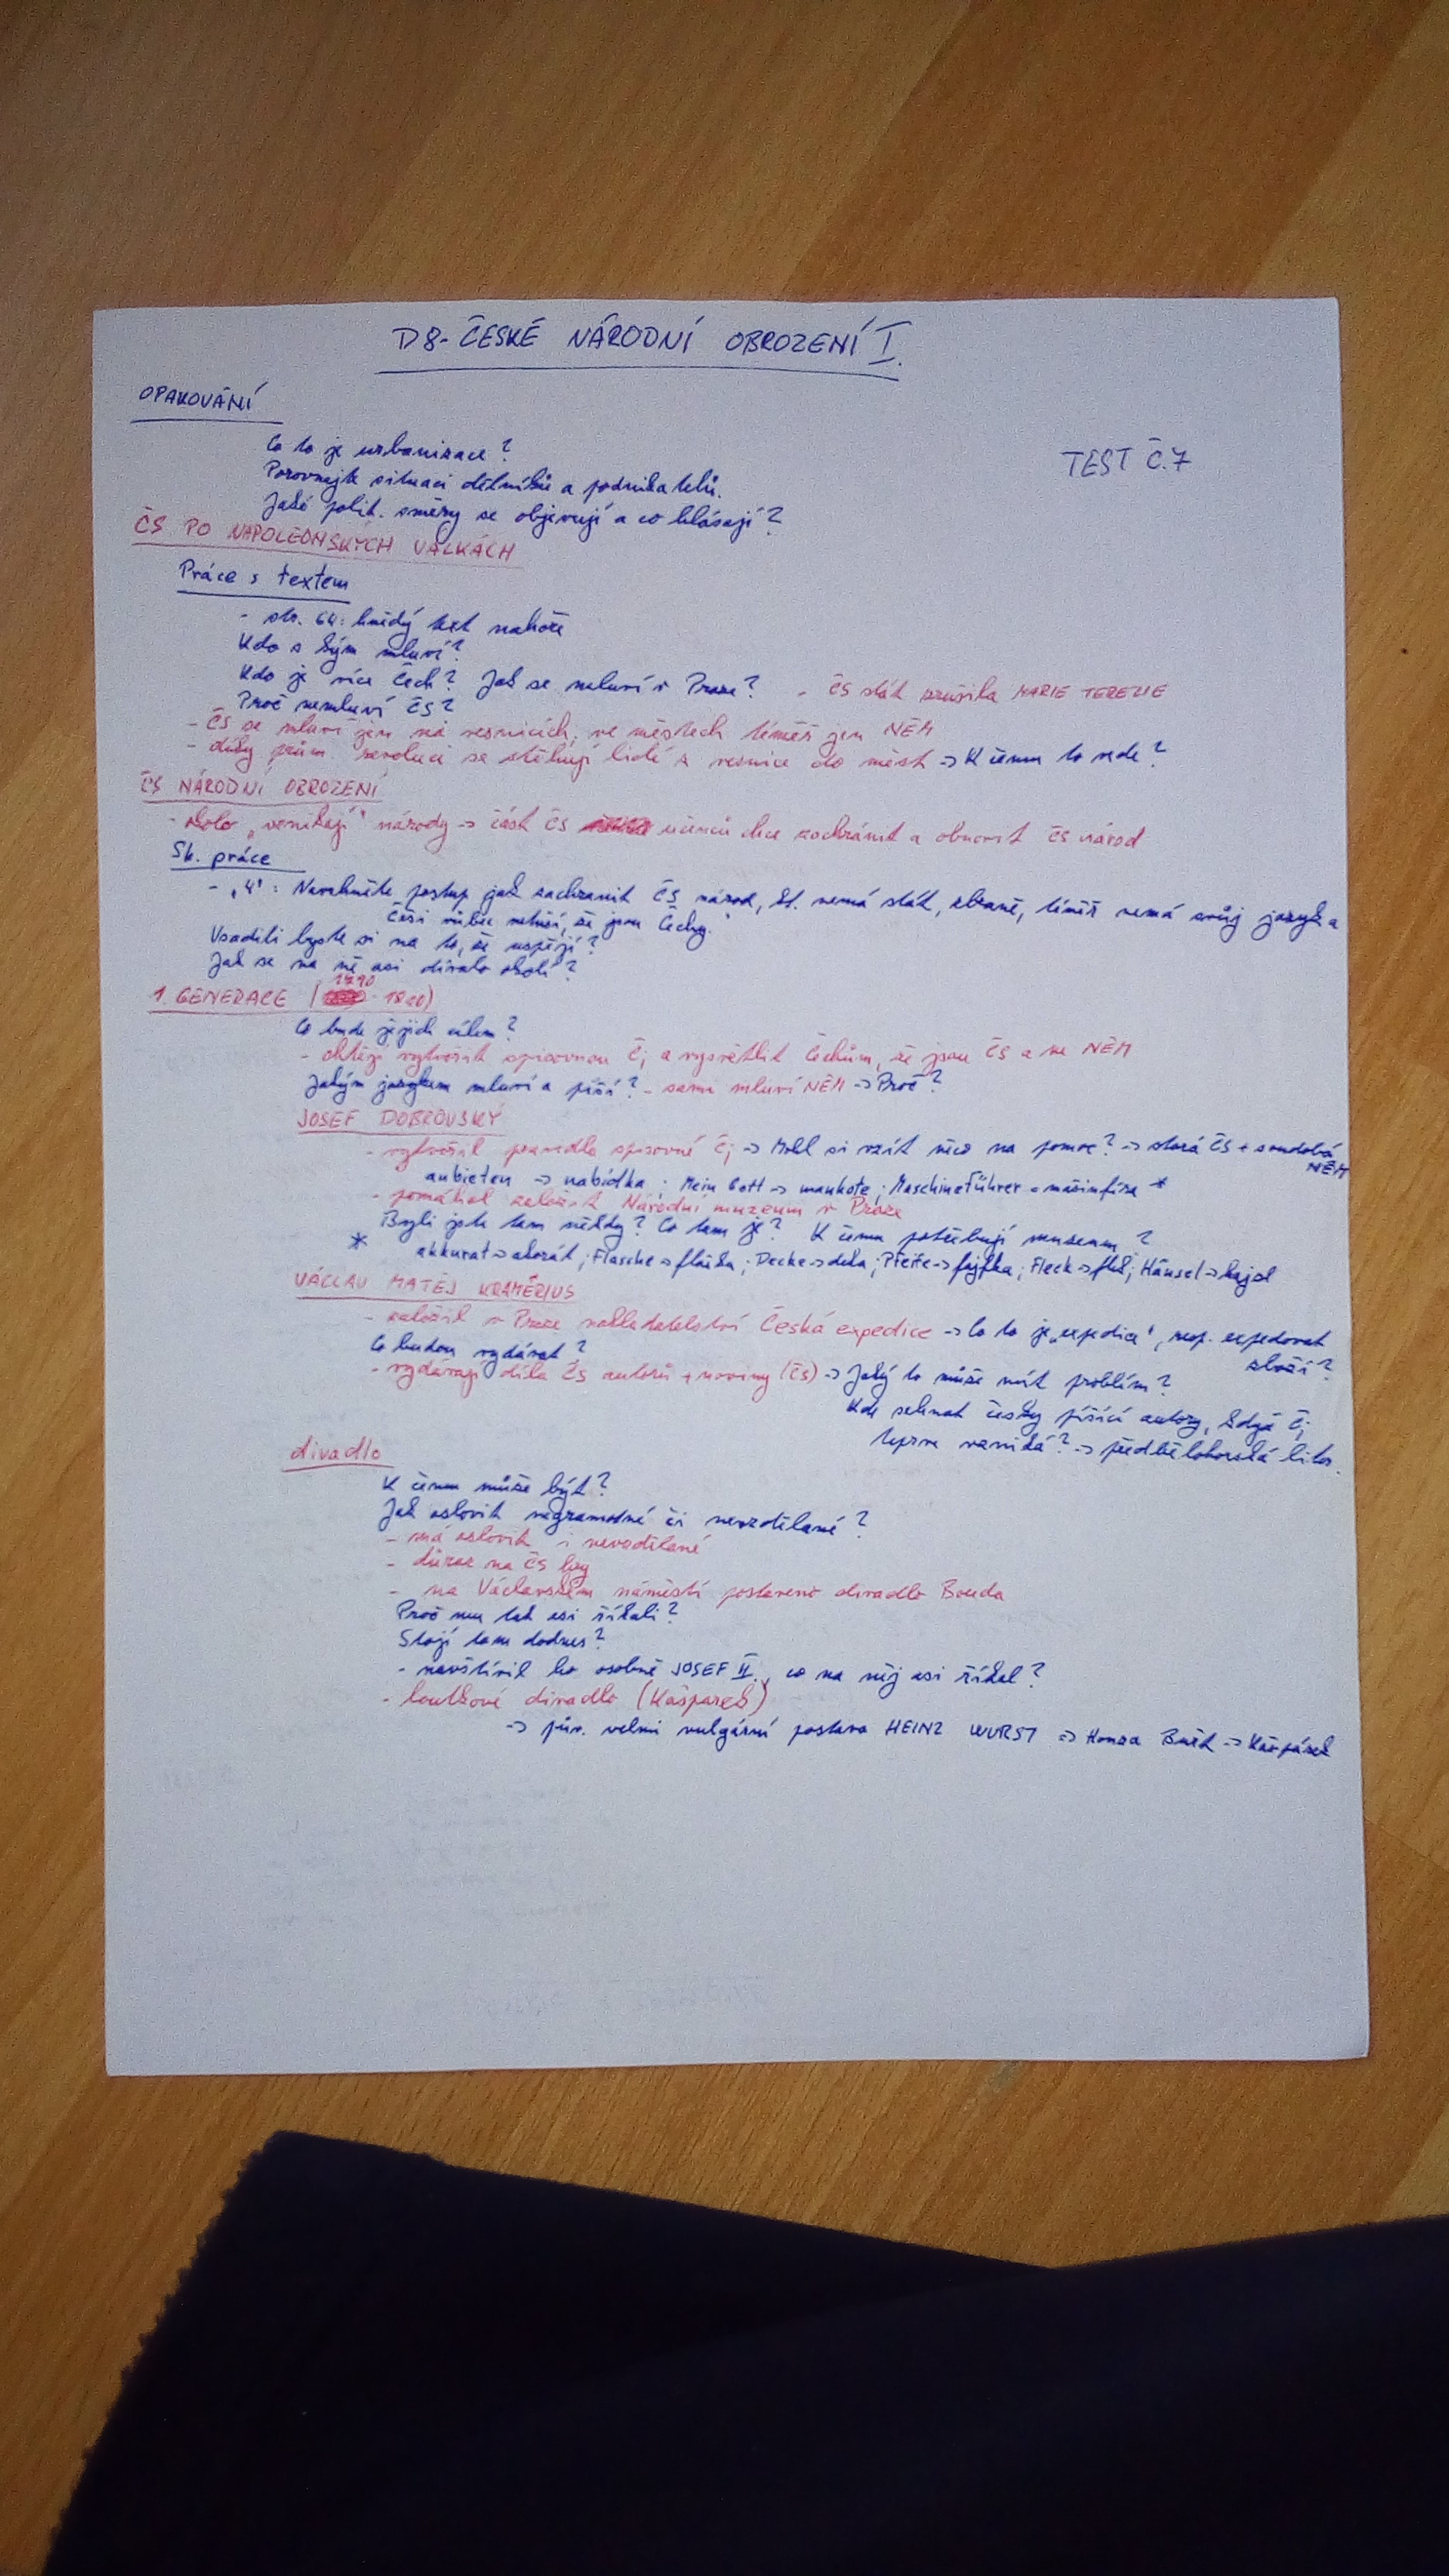 D8- ČESKÉ NÁRODNÍ OBROZENÍ I.
OPAKOVÁNÍ
TEST Č.7
Co to je urbanizace?
Porovnejte situaci dělníků a podnikatelů.
Jaké polit. směry se objevují a co hlásají?
ČS PO NAPOLEONSKÝCH VÁLKÁCH
Práce s textem
- str. 64: hnědý text nahoře
Kdo s kým mluví?
Kdo je více Čech? Jak se mluví v Praze? - ČS stát zrušila MARIE TEREZIE
Proč nemluví ČS?
- ČS se mluví jen na vesnicích, ve městech téměř jen NĚM
- díky prům. revoluci se stěhují lidé z vesnice do měst -> K čemu to vede?
ČS NÁRODNÍ OBROZENÍ
- kolo „vznikají" národy -> část ČS učenců chce zachránit a obnovit ČS národ
Sk. práce
- „4": Navrhněte postup jak zachránit ČS národ, kt. nemá stát, zbraně, téměř nemá svůj jazyk a
Češi vůbec netuší, že jsou Čechy.
Vsadili byste si na to, že uspějí?
Jak se na ně asi dívalo okolí?
1. GENERACE (1790 - 1820)
Co bude jejich cílem?
- chtějí vytvořit spisovnou Čj a vysvětlit Čechům, že jsou ČS a ne NĚM
Jakým jazykem mluví a píší? - sami mluví NĚM -> Proč?
JOSEF DOBROVSKÝ
- vytvořil pravidla spisovné Čj -> Mohl si vzít něco na pomoc? -> stará ČS + soudobá
NĚM
anbieten -> nabídka; Mein Gott -> mankote; Maschineführer = mašinfíra *
- pomáhal založit Národní muzeum v Praze
Byli jste tam někdy? Co tam je? K čemu potřebují muzeum?
* akkurat -> akorát; Flasche -> flaška; Decke -> deka; Pfeife -> fajfka; Fleck -> flek; Hänsel -> hajzl
VÁCLAV MATĚJ KRAMÉRIUS
- založil v Praze nakladatelství Česká expedice -> Co to je „expedice", resp. expedovat
zboží?
Co budou vydávat?
- vydávají díla ČS autorů + noviny (ČS) -> Jaký to může mít problém?
Kde sehnat česky píšící autory, když Čj
teprve vzniká? -> předbělohorská liter.
divadlo
K čemu může být?
Jak oslovit negramotné či nevzdělané?
- má oslovit i nevzdělané
- důraz na ČS hry
- na Václavském náměstí postaveno divadlo Bouda
Proč mu tak asi říkali?
Stojí tam dodnes?
- navštívil ho osobně JOSEF II., co na něj asi říkal?
- loutkové divadlo (Kašpárek)
-> pův. velmi vulgární postava HEINZ WURST -> Honza Buřt -> Kašpárek